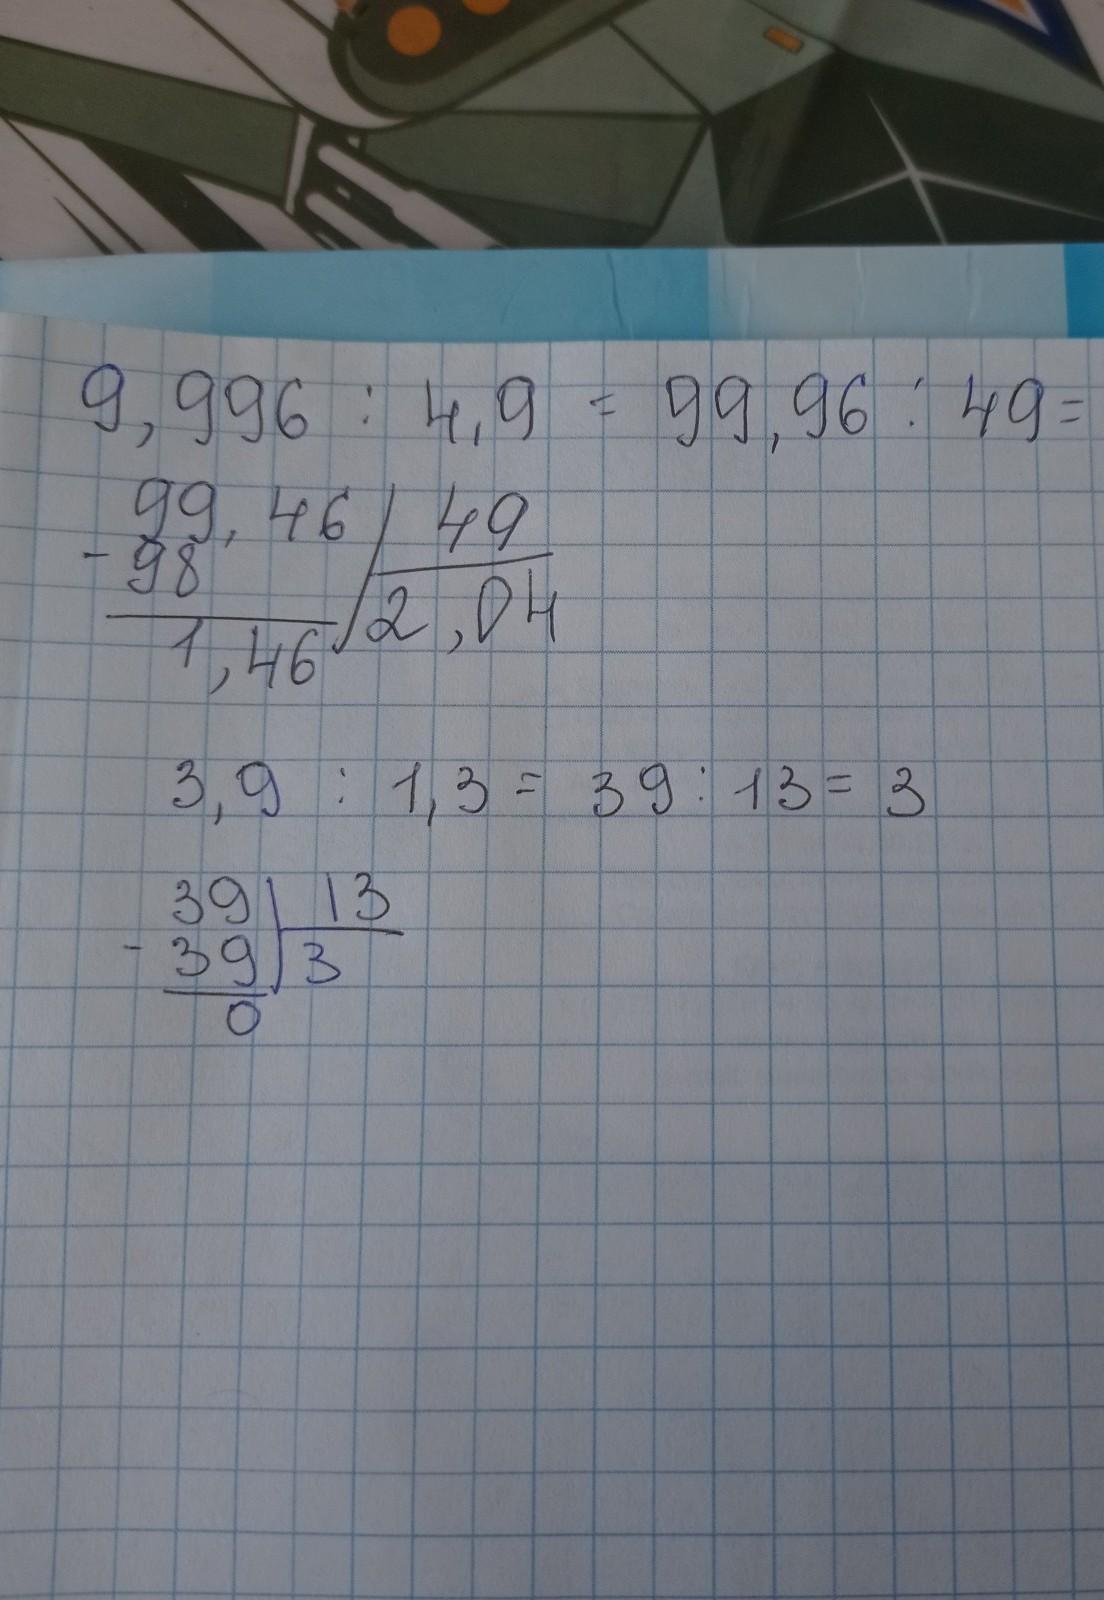 9,996 : 4,9 = 99,96 : 49 =
99,46 | 49
- 98
2,04
1,46
3,9 : 1,3 = 39 : 13 = 3
39 | 13
- 39 | 3
0